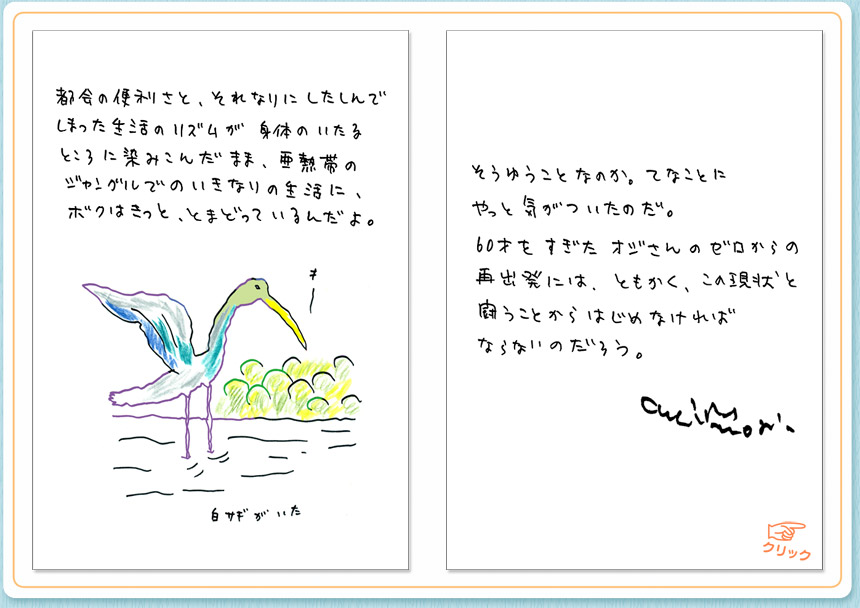 都会の便利さと、それなりにしたしんで
しまった生活のリズムが 身体のいたる
ところに染みこんだまま、亜熱帯の
ジャングルでのいきなりの生活に、
ボクはきっと、とまどっているんだよ。
キー
白サギがいた
そうゆうことなのか。てなことに
やっと気がついたのだ。
60才をすぎたオジさんのゼロからの
再出発には、ともかく、この現状と
闘うことからはじめなければ
ならないのだろう。
クリック